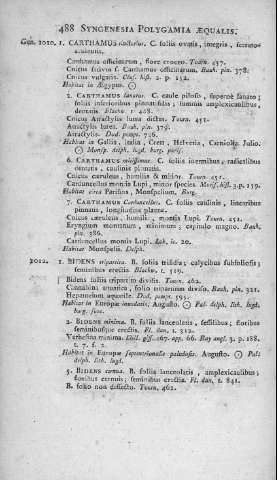 488 SYNGENESIA POLYGAMIA ÆQUALIS.
Gen. 2010. 1. CARTHAMUS tinctorius. C. foliis ovatis, integris, serrato-
aculeatis.
Carthamus officinarum, flore croceo. Tourn. 457.
Cnicus sativus s. Carthamus officinarum. Bauh. pin. 378.
Cnicus vulgaris. Clus. hist. 2. p. 152.
Habitat in Ægypto. ☉
2. CARTHAMUS lanatus. C. caule piloso, superne lanato;
foliis inferioribus pinnatifidis; summis amplexicaulibus,
dentatis. Blackw. t. 468.
Cnicus Atractylis lutea dictus. Tourn. 451.
Atractylis lutea. Bauh. pin. 379.
Atractylis. Dod. pempt. 736.
Habitat in Gallia, Italia, Creta, Helvetia, Carniolia. Julio.
☉ Monsp. delph. lugd. burg. paris.
6. CARTHAMUS mitissimus. C. foliis inermibus; radicalibus
dentatis, caulinis pinnatis.
Cnicus cæruleus, humilis & mitior. Tourn. 451.
Carduncellus montis Lupi, minor species. Moris. hist. 3. p. 159.
Habitat circa Parisios, Monspelium. Burg.
7. CARTHAMUS Carduncellus. C. foliis caulinis, linearibus
pinnatis, longitudine plantæ.
Cnicus cæruleus, humilis, montis Lupi. Tourn. 451.
Eryngium montanum, minimum, capitulo magno. Bauh.
pin. 386.
Carduncellus montis Lupi. Lob. ic. 20.
Habitat Monspelii. Delph.
2012. 1. BIDENS tripartita. B. foliis trifidis; calycibus subfoliosis;
seminibus erectis. Blackw. t. 519.
Bidens foliis tripartito divisis. Tourn. 462.
Cannabina aquatica, folio tripartito diviso. Bauh. pin. 321.
Hepatorium aquatile. Dod. pempt. 595.
Habitat in Europæ inundatis. Augusto. ☉ Pal. delph. lith. lugd.
burg. suec.
2. BIDENS minima. B. foliis lanceolatis, sessilibus; floribus
seminibusque erectis. Fl. dan. t. 312.
Verbesina minima. Dill. giss. 167. app. 66. Ray angl. 3. p. 188.
t. 7. f. 2.
Habitat in Europæ septentrionalis paludosis. Augusto. ☉ Pal.
delph. lith. lugd.
5. BIDENS cernua. B. foliis lanceolatis, amplexicaulibus;
floribus cernuis; seminibus erectis. Fl. dan. t. 841.
B. folio non dissecto. Tourn. 462.